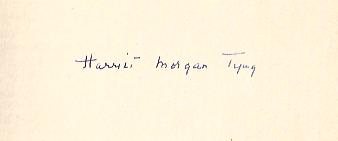 Harriet Morgan Tyng